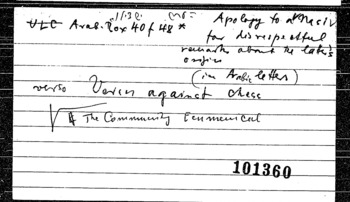 ULC Arab. Box 40 f 48 *
Apology to
for disrespectful
remarks about the latter's
origins
(in Arabic letters)
verso Verses against chess
The Community Ecumenical
101360